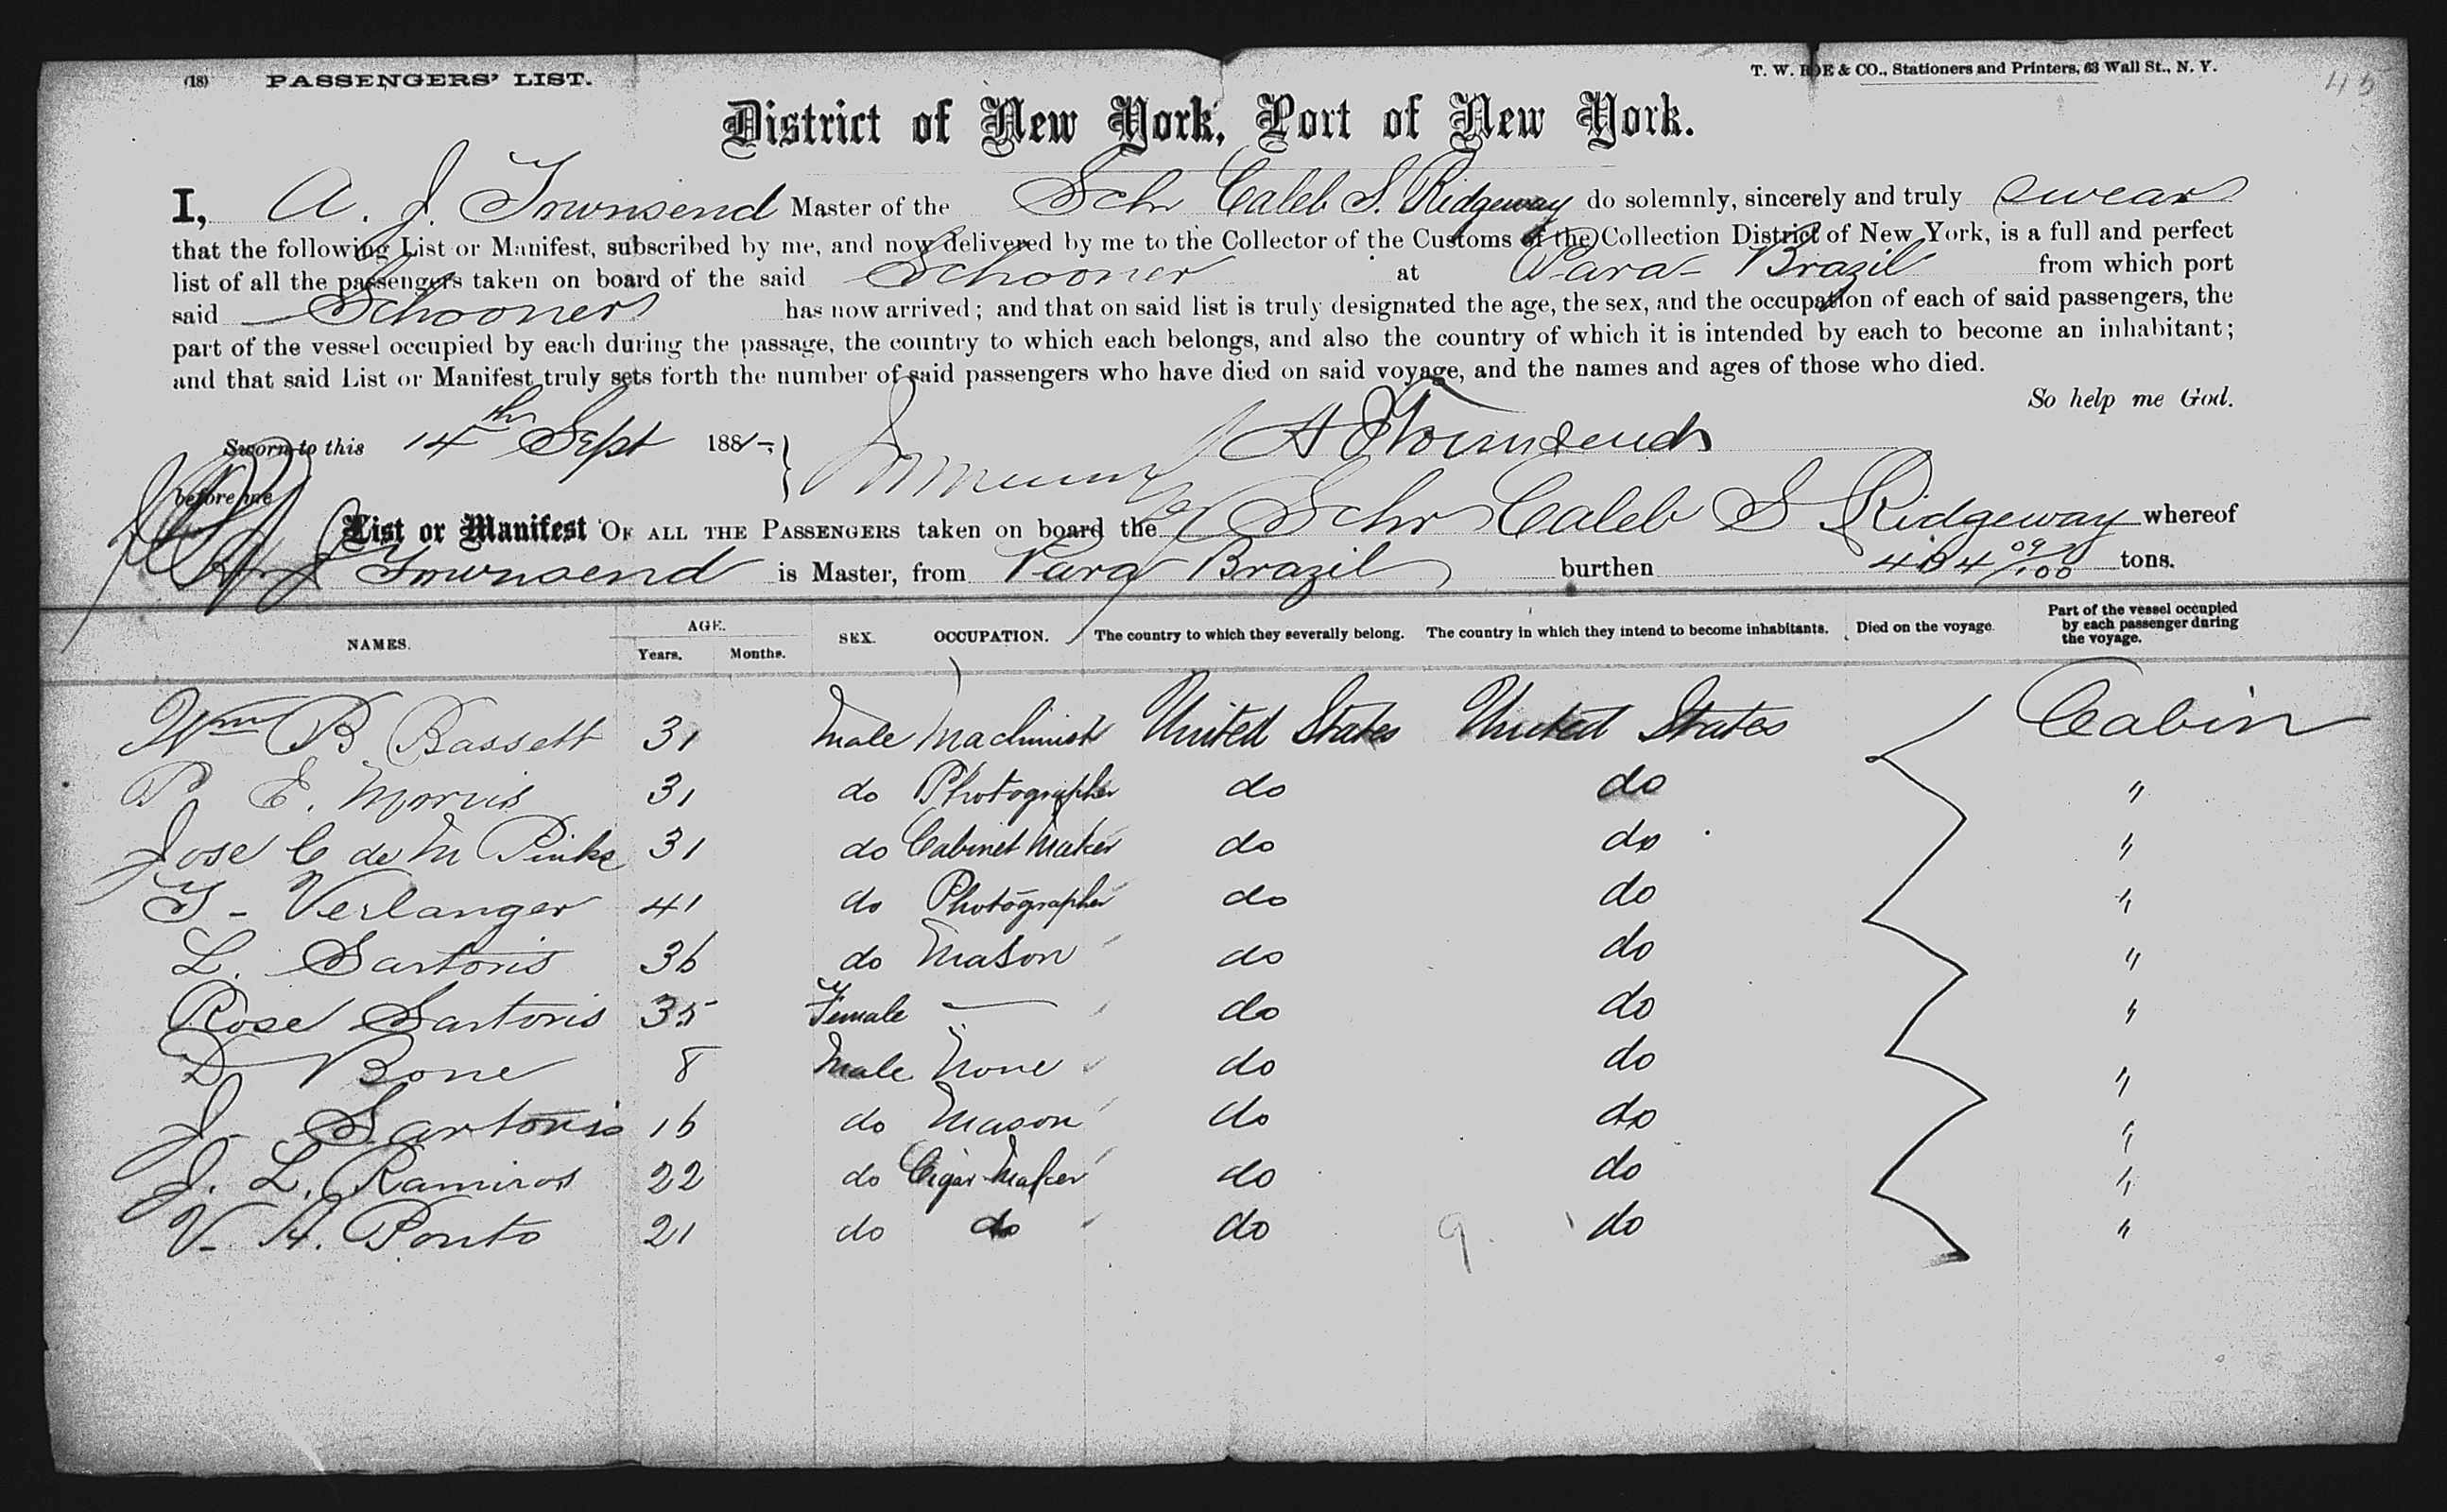 (18) PASSENGERS' LIST. T. W. ROE & CO., Stationers and Printers, 63 Wall St., N. Y.
District of New York, Port of New York.
I, A. J. Townsend Master of the Schr Caleb S. Ridgeway do solemnly, sincerely and truly swear
that the following List or Manifest, subscribed by me, and now delivered by me to the Collector of the Customs of the Collection District of New York, is a full and perfect
list of all the passengers taken on board of the said Schooner at Para Brazil from which port
said Schooner has now arrived; and that on said list is truly designated the age, the sex, and the occupation of each of said passengers, the
part of the vessel occupied by each during the passage, the country to which each belongs, and also the country of which it is intended by each to become an inhabitant;
and that said List or Manifest truly sets forth the number of said passengers who have died on said voyage, and the names and ages of those who died.
So help me God.
Sworn to this 14th Sept 188 A Townsend
before me
List or Manifest OF ALL THE PASSENGERS taken on board the Schr Caleb S Ridgeway whereof
A J Townsend is Master, from Para Brazil burthen 484 09/100 tons.
NAMES. AGE. Years. Months. SEX. OCCUPATION. The country to which they severally belong. The country in which they intend to become inhabitants. Died on the voyage. Part of the vessel occupied by each passenger during the voyage.
Wm B Bassett 31 Male Machinist United States United States Cabin
P E. Morris 31 do Photographer do do "
Jose C de M 31 do Cabinet Maker do do "
Verlanger 41 do Photographer do do "
L. Sartoris 36 do Mason do do "
Rose Sartoris 35 Female — do do "
D Bone 8 Male None do do "
J. Sartoris 16 do Mason do do "
J. L. Ramiros 22 do Cigar Maker do do "
V. A. Ponto 21 do do do 9. do "